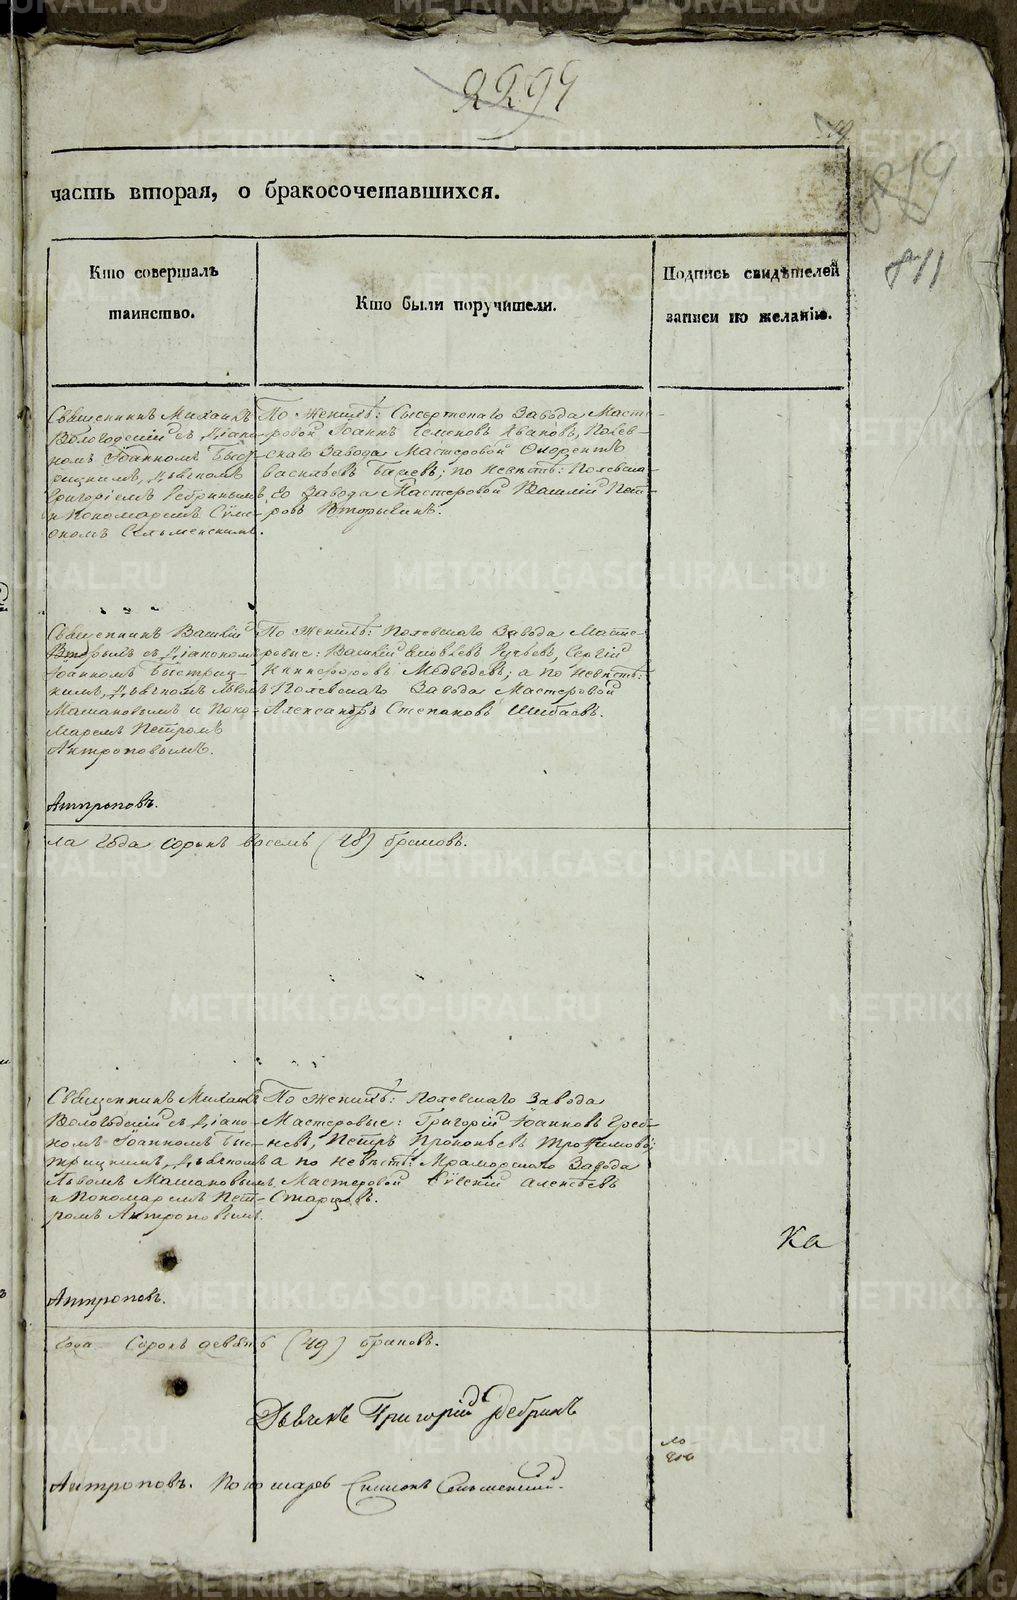 2299
819
811
часть вторая, о бракосочетавшихся.
Кто совершалъ
таинство.
Кто были поручители.
Подпись свидѣтелей
записи по желанію.
Священникъ Михаилъ
Вологодскій съ Діако-
номъ Іоанномъ Быст-
рицкимъ, Дьячкомъ
Григоріемъ Ребринымъ
и Пономаремъ Сүме-
ономъ Сельменскимъ.
По женихѣ: Сысертскаго Завода Масте-
ровой Іоаннъ Семеновъ Ивановъ, Полев-
скаго Завода Мастеровой
Васильевъ; по невѣстѣ: Полевска-
го Завода Мастеровой Василій Пет-
ровъ Вторыхинъ.
Священникъ Василій
съ Діакономъ
Іоанномъ Быстриц-
кимъ, Дьячкомъ Львомъ
Машановымъ и Поно-
маремъ Петромъ
Антроповымъ.
По женихѣ: Полевскаго Завода Масте-
ровые: Василій Яковлевъ, Сергій
Никифоровъ Медведевъ; а по невѣстѣ:
Полевскаго Завода Мастеровой
Александръ Степановъ Шибаевъ.
Антроповъ.
ла года сорокъ восемь (48) браковъ.
Священникъ Михаилъ
Вологодскій съ Діако-
номъ Іоанномъ Бы-
стрицкимъ, Дьячкомъ
Львомъ Машановымъ
и Пономаремъ Пет-
ромъ Антроповымъ.
По женихѣ: Полевскаго Завода
Мастеровые: Григорій Іоанновъ Греб-
невъ, Петръ Прокопьевъ Трофимовъ;
а по невѣстѣ: Мраморскаго Завода
Мастеровой Алексѣевъ
Старцовъ.
Ка
Антроповъ.
года сорокъ девять (49) браковъ.
Дьячекъ Григорій Ребринъ
Антроповъ. Пономарь Симеонъ Сельменскій.
METRIKI.GASO-URAL.RU